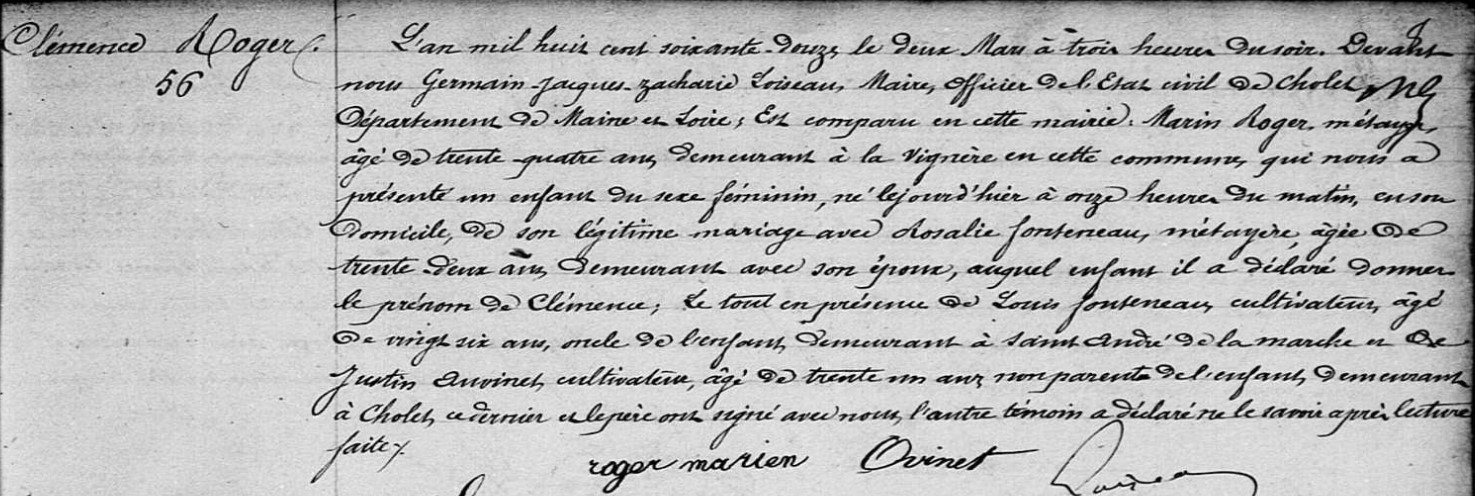 Clémence Roger.
56
L'an mil huit cent soixante-douze, le deux Mars à trois heures du soir. Devant
nous Germain-Jacques-Zacharie Loiseau, Maire, Officier de l'Etat civil de Cholet,
Département de Maine et Loire; Est comparu en cette mairie: Marin Roger, métayer,
âgé de trente-quatre ans, demeurant à la Vignère en cette commune, qui nous a
présenté un enfant du sexe féminin, né lejourd'hier à onze heures du matin, en son
domicile, de son légitime mariage avec Rosalie fonteneau, métayère, âgée de
trente-deux ans, demeurant avec son époux, auquel enfant il a déclaré donner
le prénom de Clémence; Le tout en présence de Louis fonteneau, cultivateur, âgé
de vingt six ans, oncle de l'enfant, demeurant à Saint André de la marche et de
Justin Auvinet, cultivateur, âgé de trente un ans, non parent de l'enfant, demeurant
à Cholet, ce dernier et le père ont signé avec nous, l'autre témoin a déclaré ne le savoir après lecture
faite.
roger marien Ovinet Loiseau